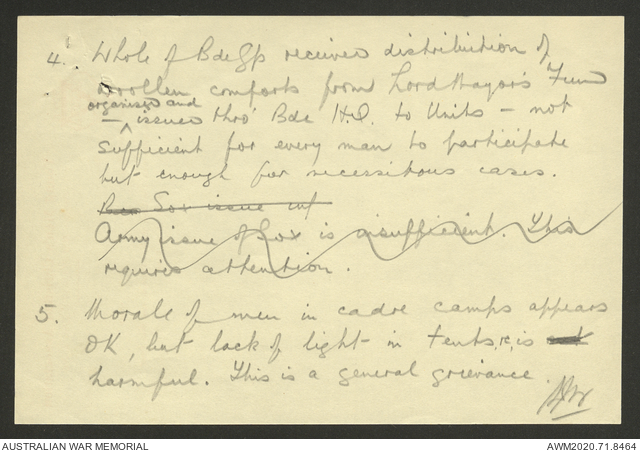 4. Whole of Bde Gp received distribution of
woollen comforts from Lord Mayor's Fund
organised and
– issued thro' Bde H.Q. to Units – not
sufficient for every man to participate
but enough for necessitous cases.
Sox issue
Army issue of Sox is insufficient. This
requires attention.
5. Morale of men in cadre camps appears
OK, but lack of light in tents, is
harmful. This is a general grievance.
AUSTRALIAN WAR MEMORIAL
AWM2020.71.8464